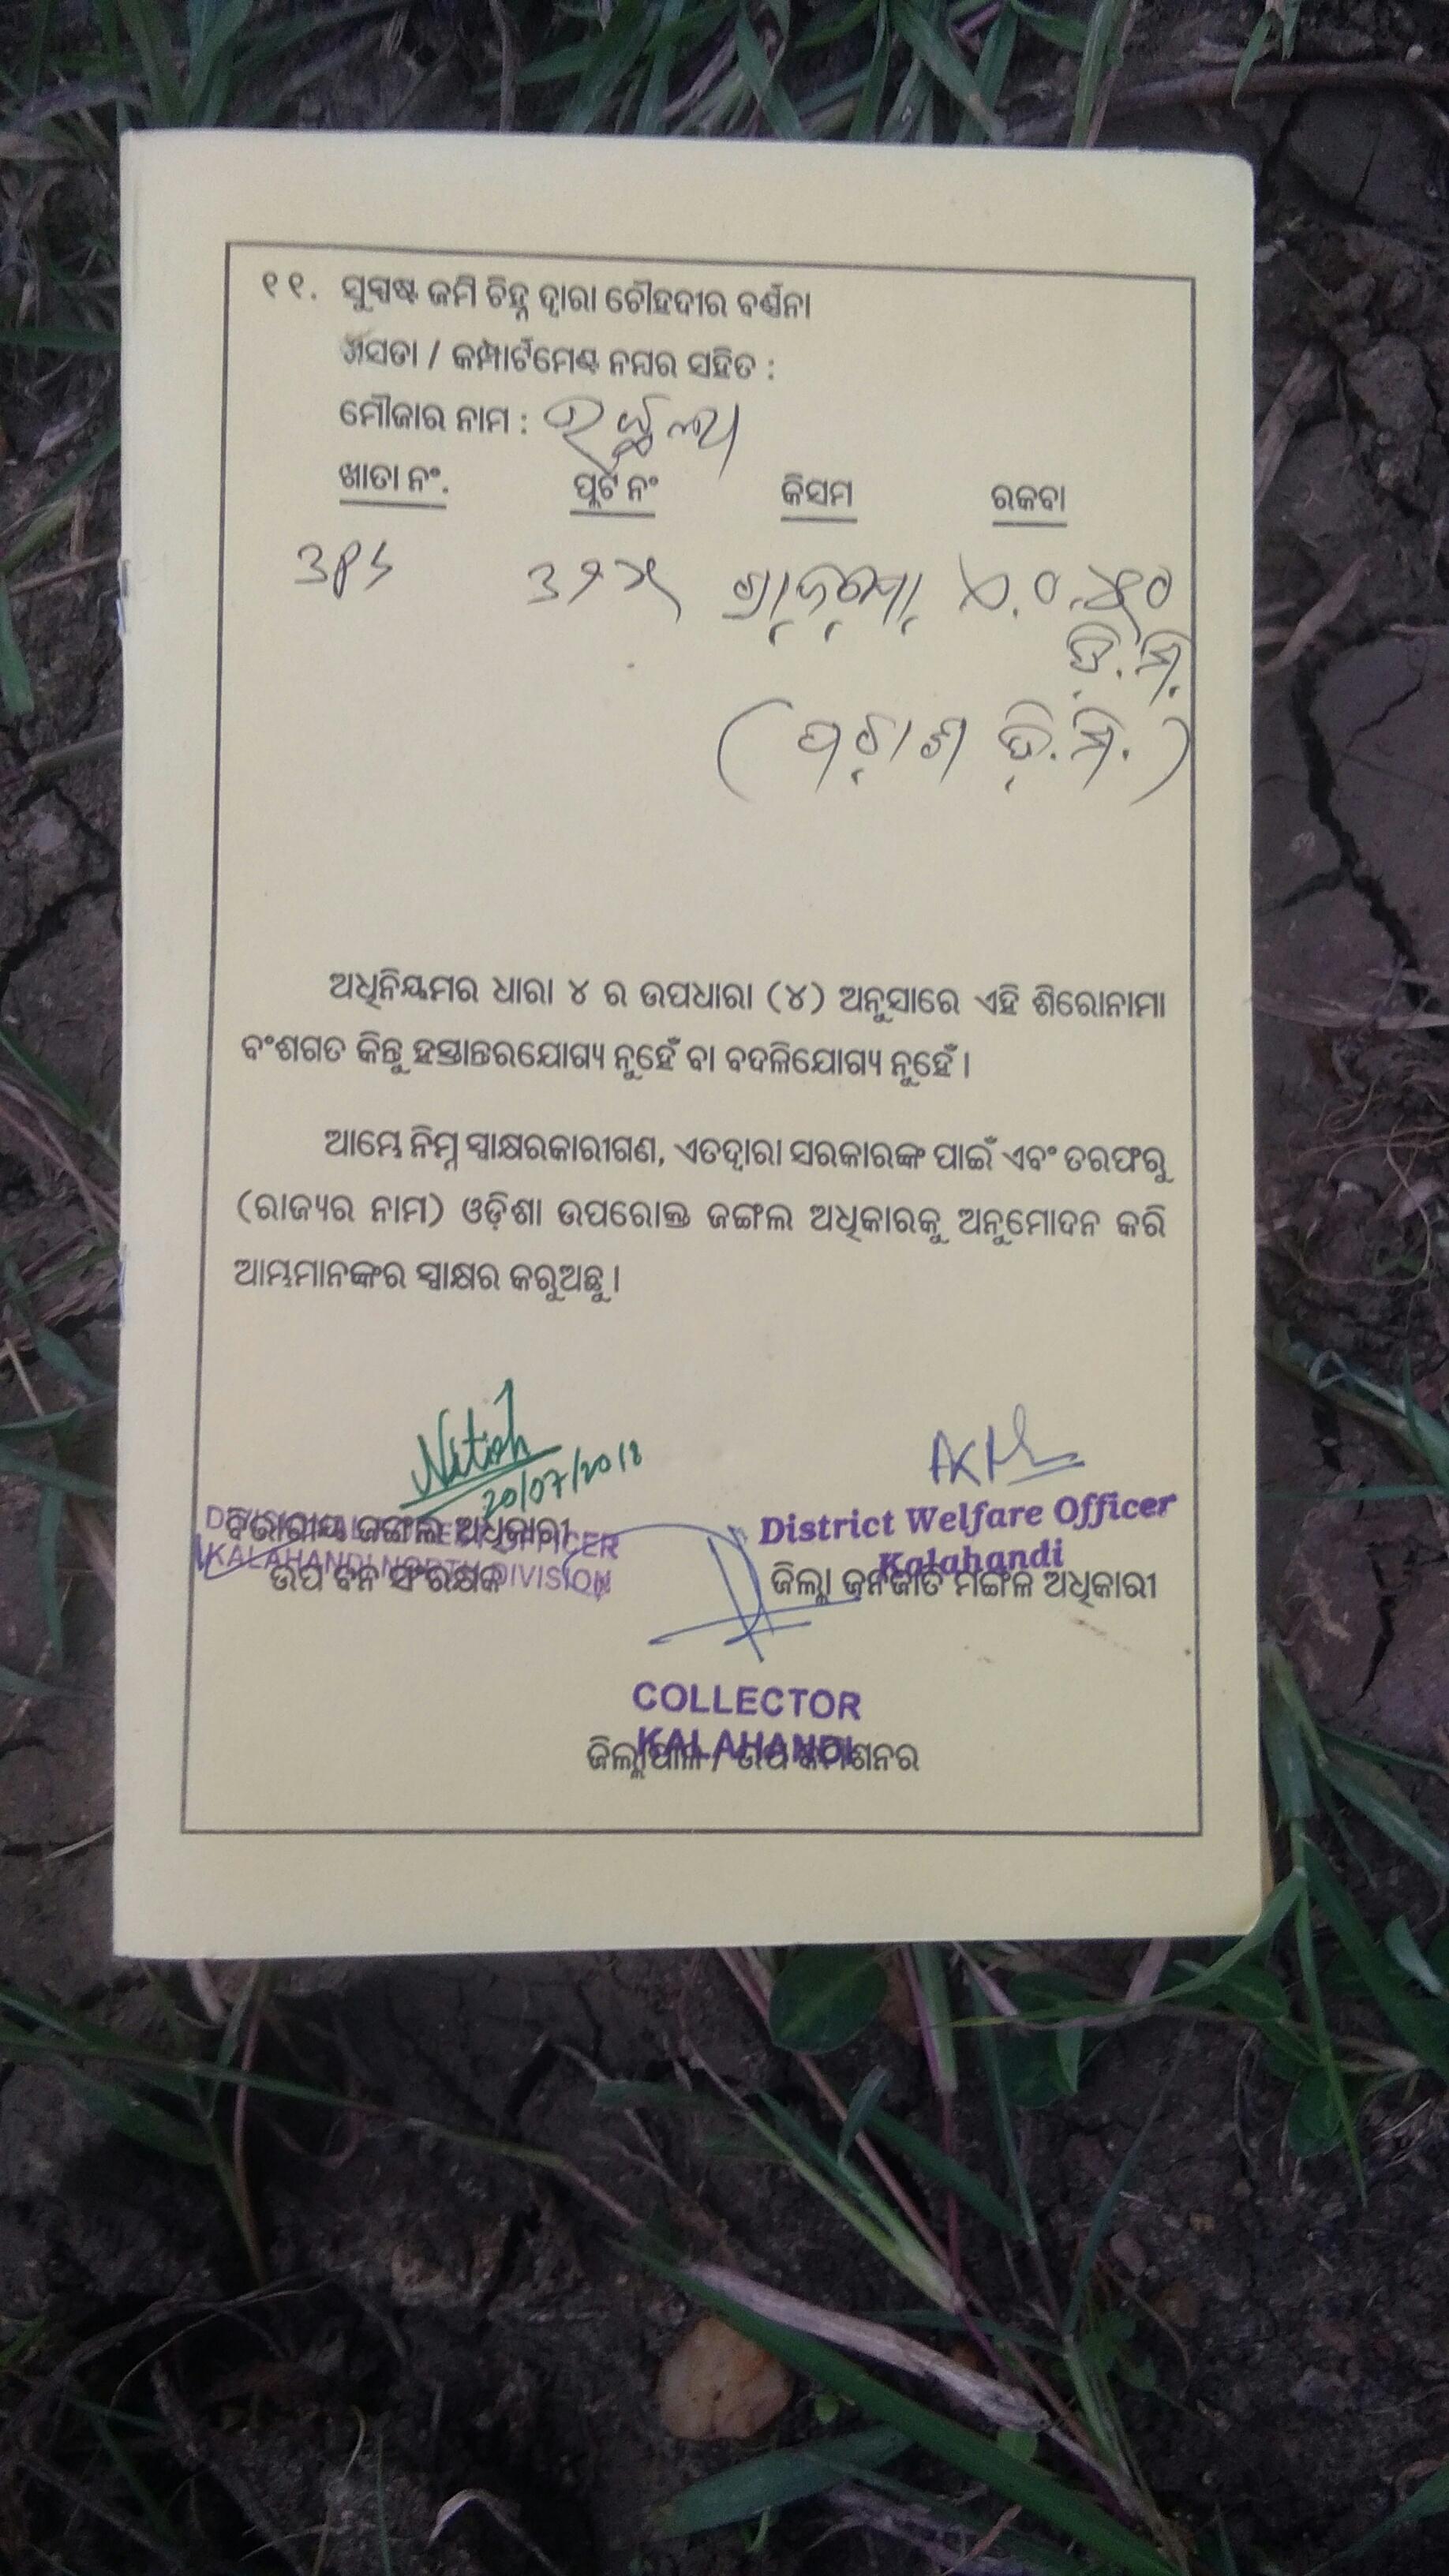 ୧୧. ସୁସ୍ପଷ୍ଟ ଜମି ଚିହ୍ନ ଦ୍ୱାରା ଚୌହଦୀର ବର୍ଣ୍ଣନା
ଖସଡା / କମ୍ପାର୍ଟମେଣ୍ଟ ନମ୍ବର ସହିତ :
ମୌଜାର ନାମ :
ଖାତା ନଂ. ପ୍ଲଟ ନଂ କିସମ ରକବା
ଡି.ମି.
(ପଚାଶ ଡି.ମି.)
ଅଧିନିୟମର ଧାରା ୪ ର ଉପଧାରା (୪) ଅନୁସାରେ ଏହି ଶିରୋନାମା
ବଂଶଗତ କିନ୍ତୁ ହସ୍ତାନ୍ତରଯୋଗ୍ୟ ନୁହେଁ ବା ବଦଳିଯୋଗ୍ୟ ନୁହେଁ ।
ଆମ୍ଭେ ନିମ୍ନ ସ୍ୱାକ୍ଷରକାରୀଗଣ, ଏତଦ୍ୱାରା ସରକାରଙ୍କ ପାଇଁ ଏବଂ ତରଫରୁ
(ରାଜ୍ୟର ନାମ) ଓଡ଼ିଶା ଉପରୋକ୍ତ ଜଙ୍ଗଲ ଅଧିକାରକୁ ଅନୁମୋଦନ କରି
ଆମ୍ଭମାନଙ୍କର ସ୍ୱାକ୍ଷର କରୁଅଛୁ ।
Nitish
20/07/2018
District Welfare Officer
Kalahandi
DIVISIONAL FOREST OFFICER
KALAHANDI NORTH DIVISION
ବିଭାଗୀୟ ଜଙ୍ଗଲ ଅଧିକାରୀ
ଉପ ବନ ସଂରକ୍ଷକ
ଜିଲ୍ଲା ଜନଜାତି ମଙ୍ଗଳ ଅଧିକାରୀ
COLLECTOR
KALAHANDI
ଜିଲ୍ଲାପାଳ / ଉପ କମିଶନର